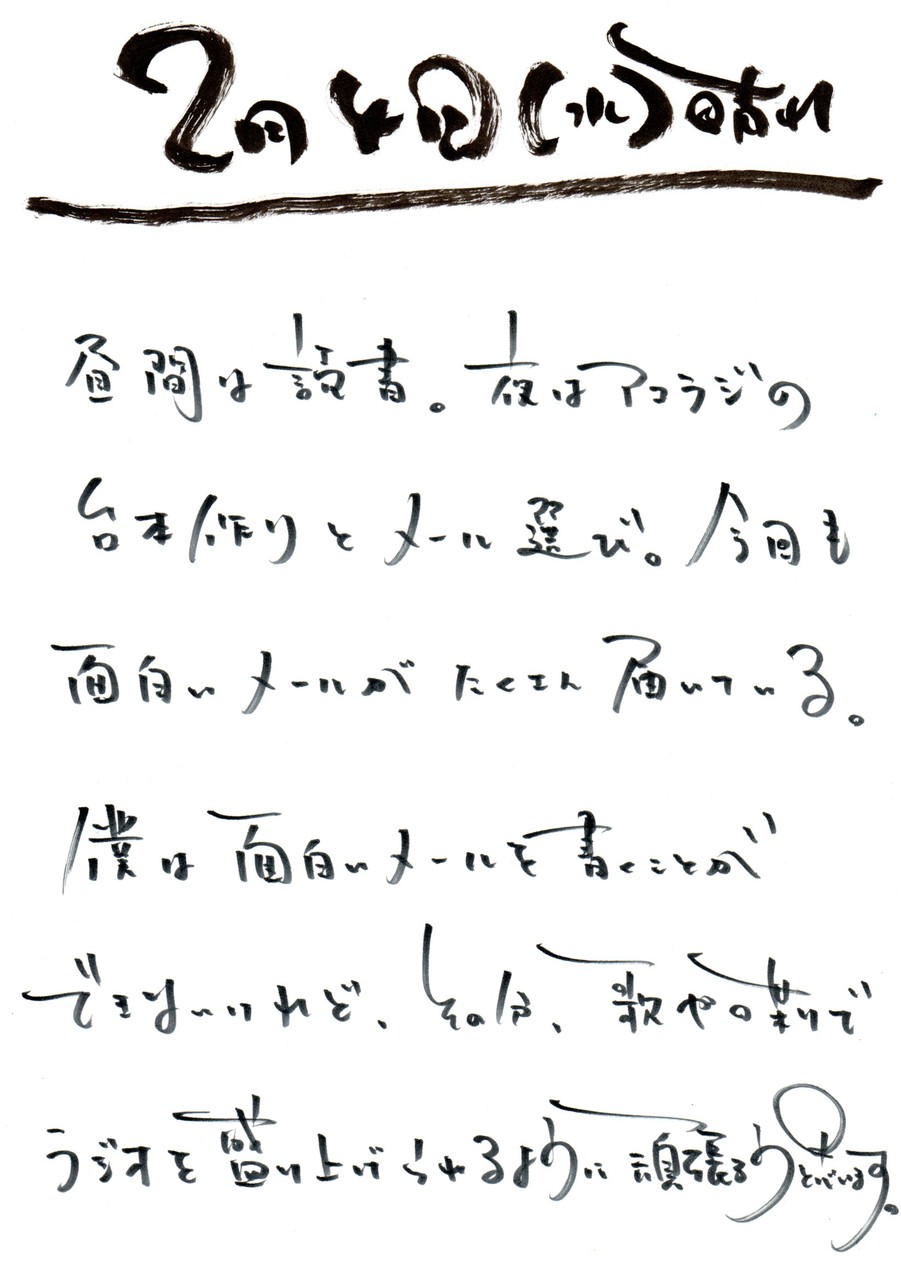 2月4日(水)晴れ
昼間は読書。夜はアコラジの
台本作りとメール選び。今回も
面白いメールがたくさん届いている。
僕は面白いメールを書くことが
できないけれど、その分、歌や喋りで
ラジオを盛り上げられるように頑張ろうと思います。